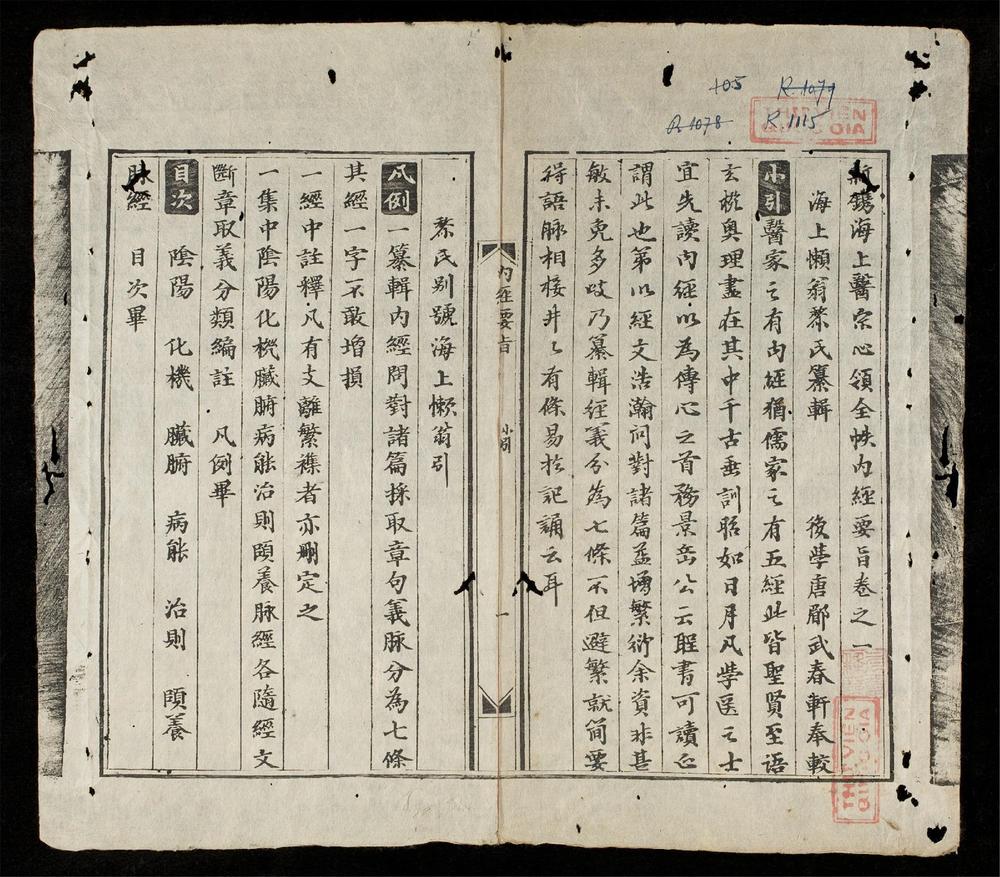 105 R.1079
R.1078 R.1115
THƯ VIỆN
QUỐC GIA
新鐫海上醫宗心領全帙內經要旨卷之一
海上懶翁黎氏纂輯 後學唐郿武春軒奉較
小引 醫家之有內經猶儒家之有五經此皆聖賢至語
玄機奧理盡在其中千古垂訓昭如日月凡學医之士
宜先讀內經以為傳心之首務景岳公云聖書可讀正
謂此也第以經文浩瀚问對諸篇益增繁衍余資非甚
敏未免多歧乃纂輯經義分為七條不但避繁就简要
得語脉相接井々有條易於記誦云耳
內經要旨 小引 一
黎氏别號海上懒翁引
凡例 一纂輯內經問對諸篇採取章句義脉分為七條
其經一字不敢增損
一經中註釋凡有支離繁襍者亦刪定之
一集中陰陽化機臟腑病能治則頤養脉經各隨經文
斷章取義分類編註 凡例畢
目次 陰陽 化機 臟腑 病能 治則 頤養
脉經 目次畢
THƯ VIỆN
QUỐC GIA